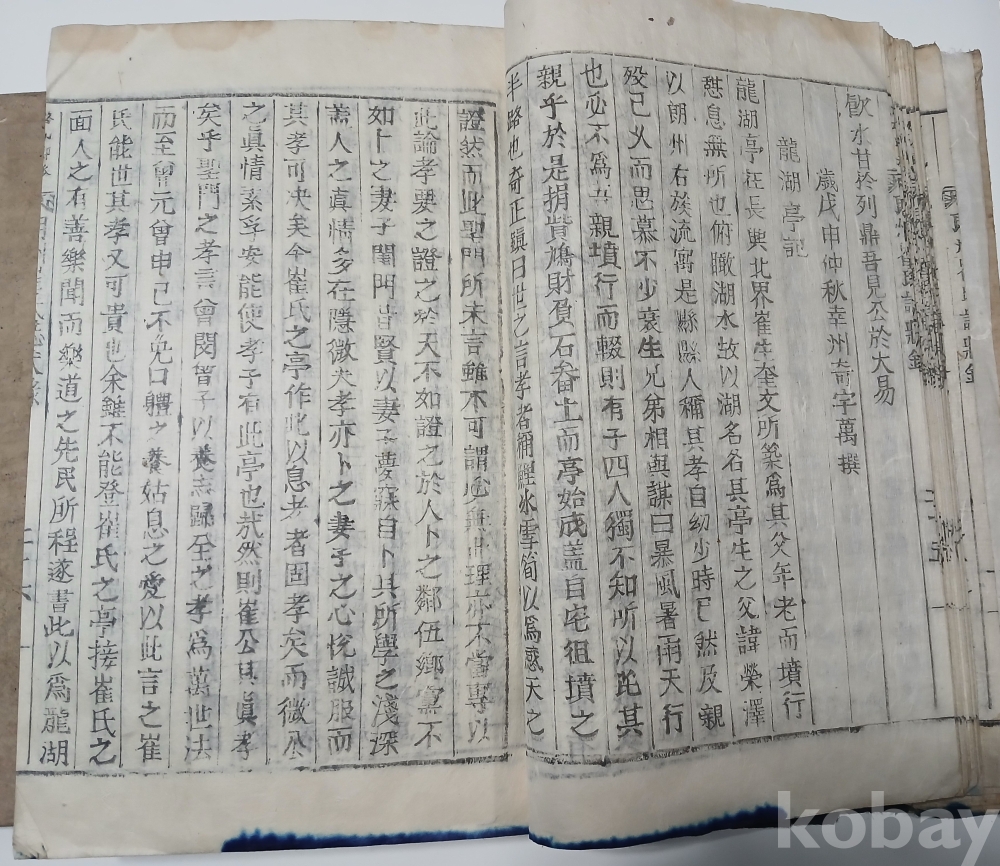 飮水甘於列鼎吾見公於大易
歲戊申仲秋幸州奇宇萬撰
龍湖亭記
龍湖亭在長興北界崔生奎文所築爲其父年老而墳行
憇息無所也俯瞰湖水故以湖名名其亭生之父諱榮澤
以朗州右族流寓是縣縣人稱其孝自幼少時已然及親
歿已久而思慕不少衰生兄弟相與謀曰暴風暑雨天行
也必不爲吾親墳行而輟則有子四人獨不知所以庇其
親乎於是捐貲鳩財負石畚土而亭始成盖自宅徂墳之
半路也奇正鎭曰世之言孝者稱鯉氷雪筍以爲感天之
證然而此聖門所未言雖不可謂無此理亦不當專以
此論孝要之證之於天不如證之於人卜之鄰伍鄕黨不
如卜之妻子閨門昔賢以妻子夢寐自卜其所學之淺深
盖人之眞情多在隱微夫孝亦卜之妻子之心悅誠服而
其孝可決矣今崔氏之亭作此以息老者固孝矣而微公
之眞情素孚安能使孝子有此亭也哉然則崔公其眞孝
矣乎聖門之孝言曾閔曾子以養志歸全之孝爲萬世法
而至曾元曾申已不免口體之養姑息之愛以此言之崔
氏能世其孝又可貴也余雖不能登崔氏之亭接崔氏之
面人之有善樂聞而樂道之先民所程遂書此以爲龍湖
二十六
kobay